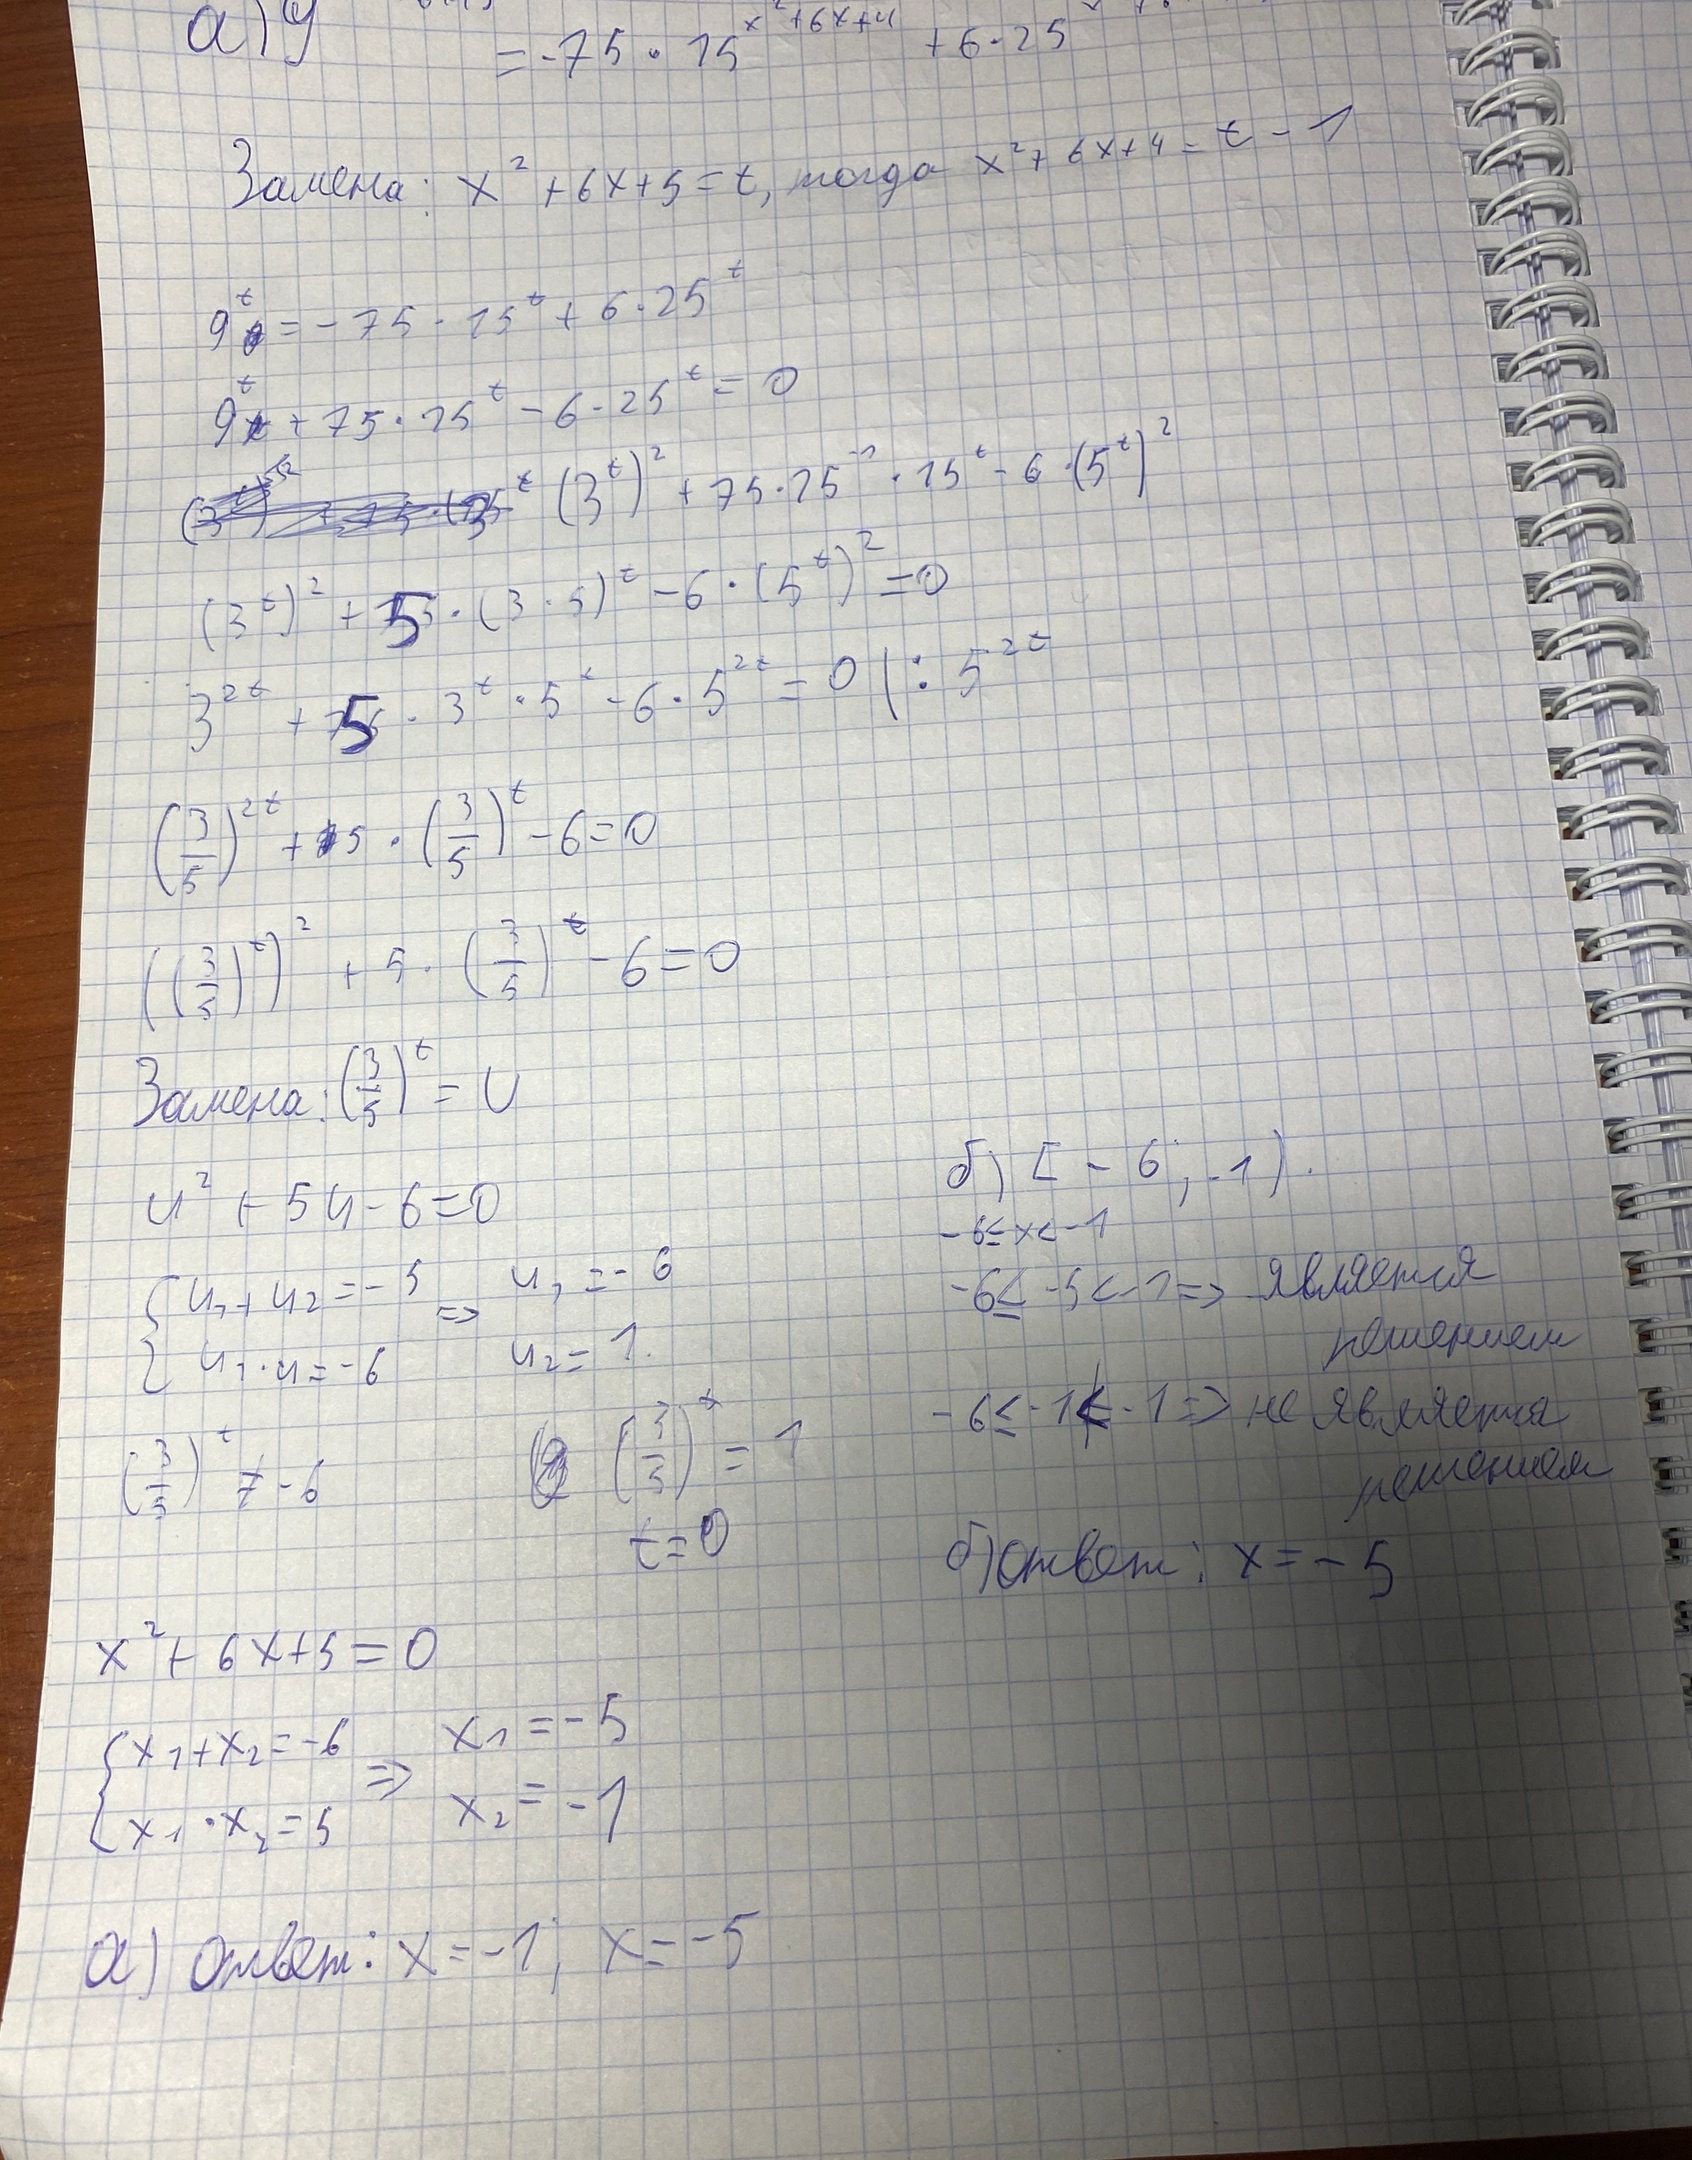 а) 9
= -75 · 15^(x²+6x+4) + 6·25
Замена: x² + 6x + 5 = t, тогда x² + 6x + 4 = t - 1
9^t = - 75 · 15^t + 6 · 25^t
9^t + 75 · 15^t - 6 · 25^t = 0
(3^t)² + 75 · 15^(-1) · 15^t - 6 · (5^t)²
(3^t)² + 5 · (3 · 5)^t - 6 · (5^t)² = 0
3^(2t) + 5 · 3^t · 5^t - 6 · 5^(2t) = 0 | : 5^(2t)
(3/5)^(2t) + 5 · (3/5)^t - 6 = 0
((3/5)^t)² + 5 · (3/5)^t - 6 = 0
Замена: (3/5)^t = U
u² + 5u - 6 = 0
{ u₁ + u₂ = -5 => u₁ = -6
{ u₁ · u = -6 u₂ = 1.
(3/5)^t ≠ -6 (3/5)^t = 1
t = 0
x² + 6x + 5 = 0
{ x₁ + x₂ = -6 => x₁ = -5
{ x₁ · x₂ = 5 x₂ = -1
а) ответ: x = -1; x = -5
б) [ - 6 ; -1).
-6 ≤ x < -1
-6 ≤ -5 < -1 => является
решением
-6 ≤ -1 ≮ -1 => не является
решением
б) ответ: x = -5